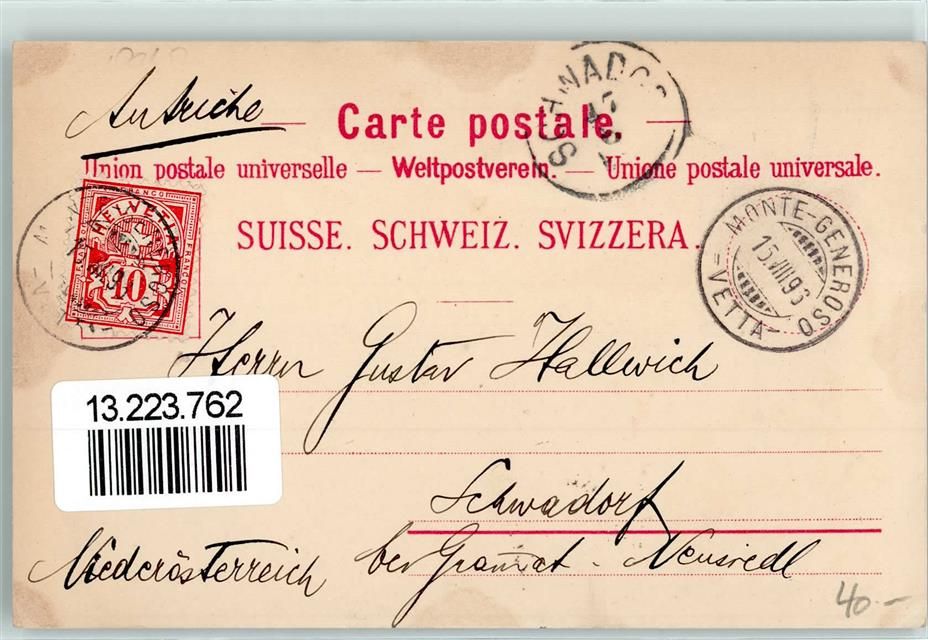 Autriche
Carte postale.
Union postale universelle — Weltpostverein. — Unione postale universale.
SUISSE. SCHWEIZ. SVIZZERA.
SCHWADO
MONTE-GENEROSO
15.VIII.96
-VETTA-
FRANCO
HELVETIA
10
FRANCO
Herrn Gustav Hallwich
13.223.762
Schwadorf
Niederösterreich bei Gramat-Neusiedl
40-